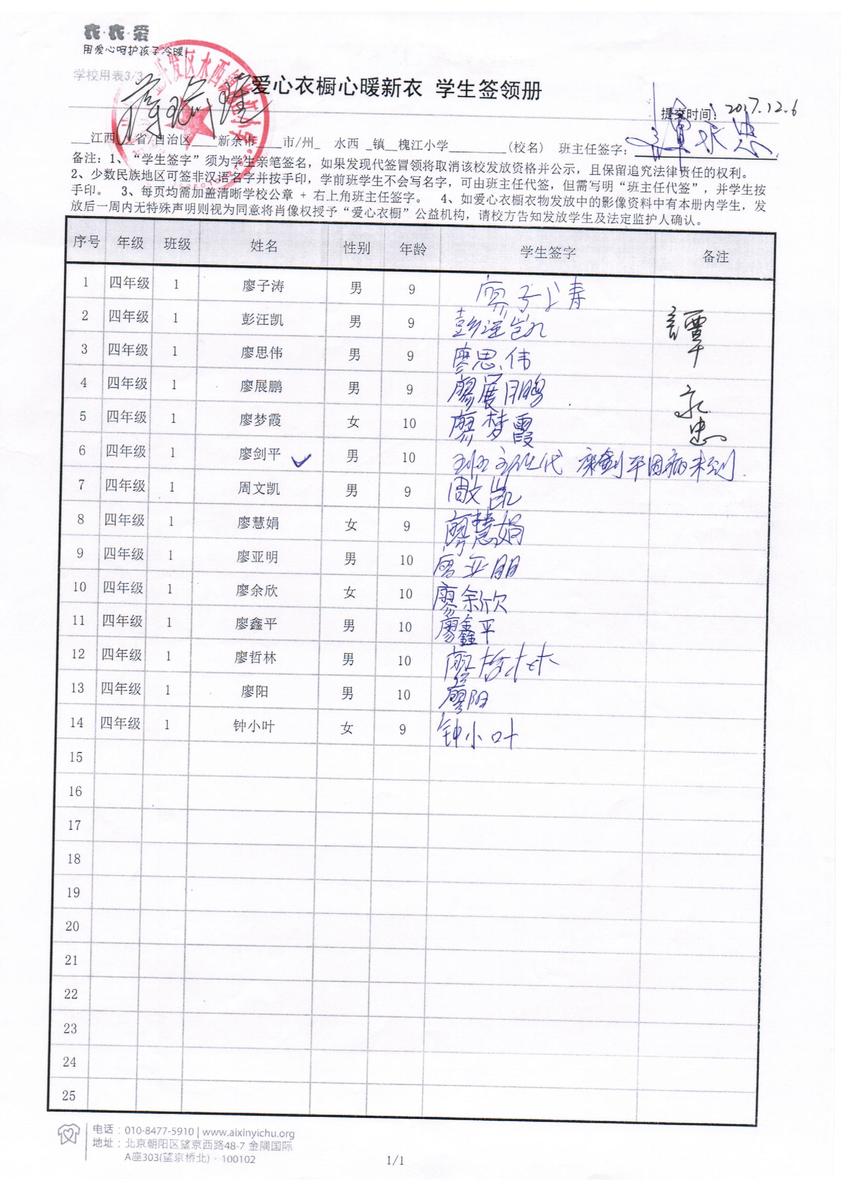 衣·衣·爱
用爱心呵护孩子冷暖!
学校用表3/3
爱心衣橱心暖新衣 学生签领册
提交时间: 2017.12.6
江西 省/自治区 新余市 市/州 水西 镇 槐江小学 (校名) 班主任签字: 谭永忠
备注: 1、“学生签字”须为学生亲笔签名，如果发现代签冒领将取消该校发放资格并公示，且保留追究法律责任的权利。
2、少数民族地区可签非汉语名字并按手印，学前班学生不会写名字，可由班主任代签，但需写明“班主任代签”，并学生按
手印。 3、每页均需加盖清晰学校公章 + 右上角班主任签字。 4、如爱心衣橱衣物发放中的影像资料中有本册内学生，发
放后一周内无特殊声明则视为同意将肖像权授予“爱心衣橱”公益机构，请校方告知发放学生及法定监护人确认。
序号 年级 班级 姓名 性别 年龄 学生签字 备注
1 四年级 1 廖子涛 男 9 廖子涛
2 四年级 1 彭汪凯 男 9 彭汪凯 譚
3 四年级 1 廖思伟 男 9 廖思伟
4 四年级 1 廖展鹏 男 9 廖展鹏 永
5 四年级 1 廖梦霞 女 10 廖梦霞 忠
6 四年级 1 廖剑平 ✓ 男 10 班主任代 廖剑平因病未到
7 四年级 1 周文凯 男 9 周文凯
8 四年级 1 廖慧娟 女 9 廖慧娟
9 四年级 1 廖亚明 男 10 廖亚明
10 四年级 1 廖余欣 女 10 廖余欣
11 四年级 1 廖鑫平 男 10 廖鑫平
12 四年级 1 廖哲林 男 10 廖哲林
13 四年级 1 廖阳 男 10 廖阳
14 四年级 1 钟小叶 女 9 钟小叶
15
16
17
18
19
20
21
22
23
24
25
电话: 010-8477-5910 | www.aixinyichu.org
地址: 北京朝阳区望京西路48-7 金隅国际
A座303(望京桥北) · 100102
1/1